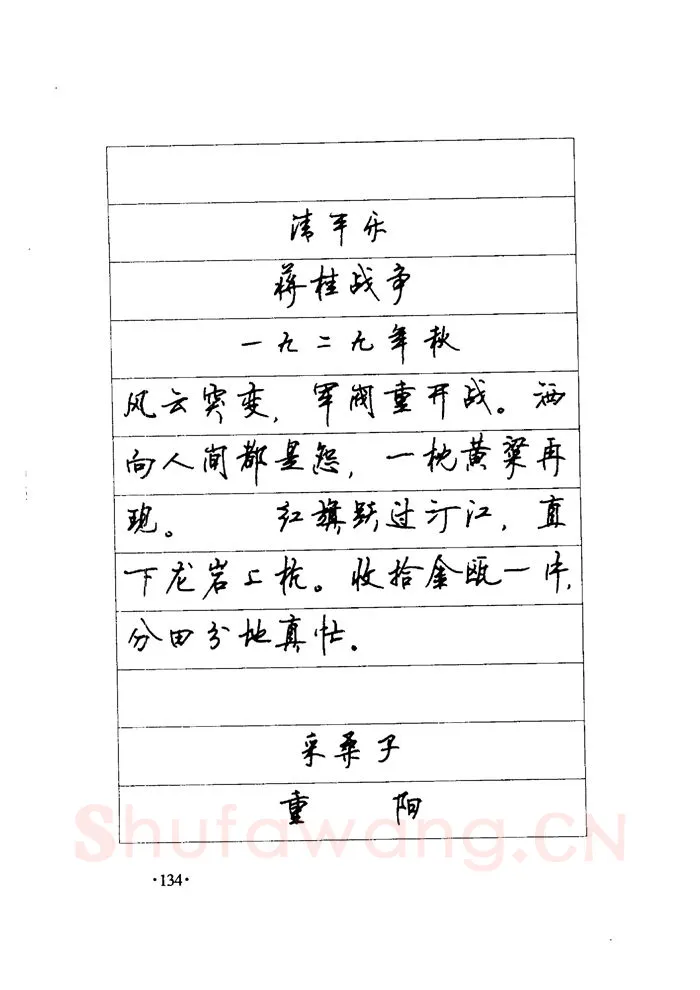 清平乐
蒋桂战争
一九二九年秋
风云突变，军阀重开战。洒
向人间都是怨，一枕黄粱再
现。　　红旗跃过汀江，直
下龙岩上杭。收拾金瓯一片，
分田分地真忙。
采桑子
重　阳
Shufawang.CN
·134·